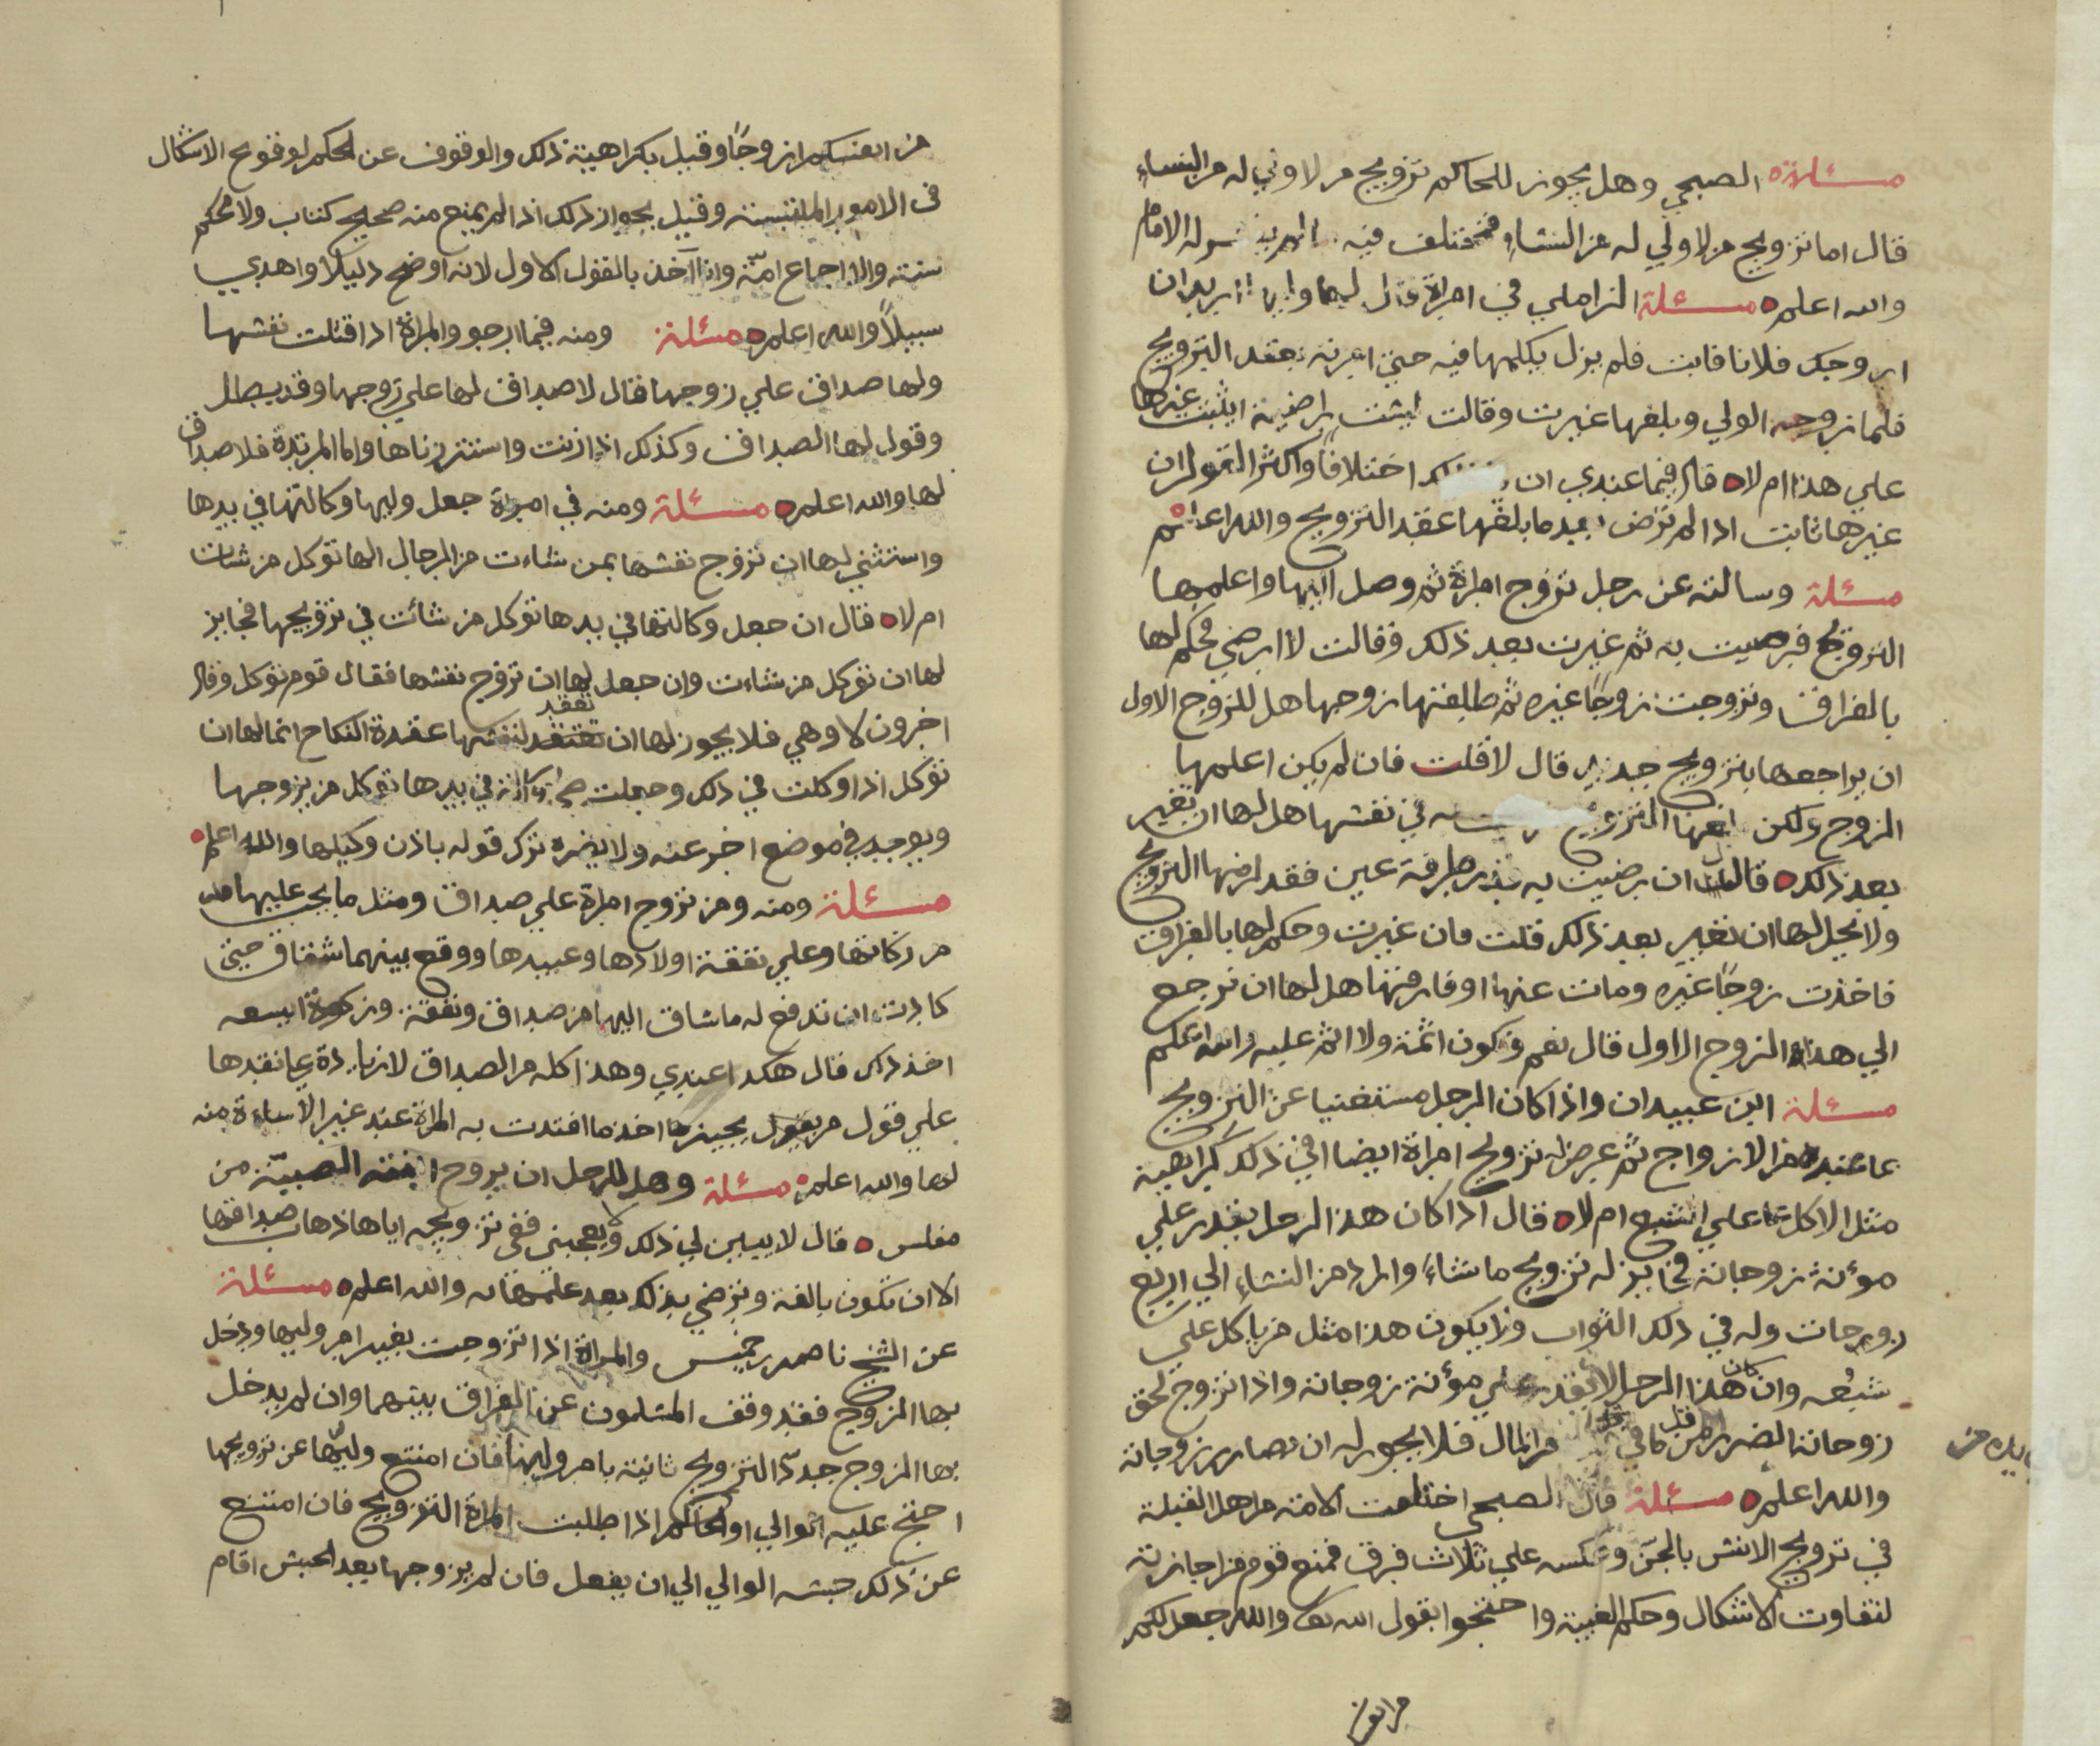 مسئلة الصبحي وهل يجوز للحاكم تزويج من لا ولي له من النساء
قال اما تزويج من لا ولي له من النساء فمختلف فيه الامام
والله اعلم مسئلة الزاملي في امراة قال لها وليها اريد ان
ازوجك فلانا فابت فلم يزل يكلمها فيه حتى امرته بعقد التزويج
فلما زوجه الولي وبلغها غيرت وقالت ليست راضية ايثبت غيرها
علي هذا ام لا قال فيما عندي ان اختلافا واكثر القول ان
غيرها ثابت اذا لم ترض بعد ما بلغها عقد التزويج والله اعلم
مسئلة وسالته عن رجل تزوج امراة ثم وصل اليها واعلمها
التزويج فرضيت به ثم غيرت بعد ذلك وقالت لا ارضي فحكم لها
بالفراق وتزوجت زوجًا غيره ثم طلقها زوجها هل للزوج الاول
ان يراجعها بتزويج جديد قال لا قلت فان لم يكن اعلمها
الزوج ولكن التزويج في نفسها هل لها ان تغير
بعد ذلك قال ان رضيت به قدر طرفة عين فقد لزمها التزويج
ولا يحل لها ان تغير بعد ذلك قلت فان غيرت وحكم لها بالفراق
فاخذت زوجًا غيره ومات عنها او فارقها هل لها ان ترجع
الي هذا الزوج الاول قال نعم وتكون اثمة ولا اثم عليه والله اعلم
مسئلة ابن عبيدان واذا كان الرجل مستغنيا عن التزويج
بما عنده من الازواج ثم عرض له تزويج امراة ايضا افي ذلك كراهية
مثل الاكل علي الشبع ام لا قال اذا كان هذا الرجل يقدر علي
مؤنة زوجاته فجايز له تزويج ما شاء واراد من النساء الي اربع
زوجات وله في ذلك الثواب ولا يكون هذا مثل من ياكل علي
شبعه وان كان هذا الرجل لا يقدر علي مؤنة زوجاته واذا تزوج لحق
زوجاته الضرر من قلة ما في من المال فلا يجوز له ان يضارر زوجاته
يده من
والله اعلم مسئلة قال الصبحي اختلفت الامة من اهل القبلة
في تزويج الانس بالجن وعكسه علي ثلاث فرق فمنع قوم من اجازته
لتفاوت الاشكال وحكم الغيبة واحتجوا بقول الله تعا والله جعل لكم
من انفس
من انفسكم ازوجًا وقيل بكراهية ذلك والوقوف عن الحكم لوقوع الاشكال
في الامور الملتبسة وقيل بجواز ذلك اذا لم يمنع منه صحيح كتاب ولا محكم
سنته ولا اجماع امّة وانا آخذ بالقول الاول لانه اوضح دليلا واهدي
سبيلاً والله اعلم مسئلة ومنه فيما ارجو والمراة اذا قتلت نفسها
ولها صداق علي زوجها قال لا صداق لها علي زوجها وقد يبطل
وقول لها الصداق وكذلك اذا زنت واستتر زناها واما المرتدة فلا صداق
لها والله اعلم مسئلة ومنه في امراة جعل وليها وكالتها في يدها
واستثني لها ان تزوج نفسها بمن شاءت من الرجال الها توكل من شات
ام لا قال ان جعل وكالتها في يدها توكل من شائت في تزويجها فجايز
لها ان توكل من شاءت وان جعل لها ان تزوج نفسها فقال قوم توكل وقال
اخرون لا وهي فلا يجوز لها ان تعقد لنفسها عقدة النكاح انما لها ان
توكل اذا وكلت في ذلك وجعلت في يدها توكل من يزوجها
ويوجد في موضع اخر عنه ولا يضره ترك قوله باذن وكيلها والله اعلم
مسئلة ومنه ومن تزوج امراة علي صداق ومثل ما يجب عليها
من زكاتها وعلي نفقة اولادها وعبيدها ووقع بينهما شقاق حتى
كادت ان تدفع له ما شاق اليها من صداق ونفقة وزكوة ايسعه
اخذ ذلك قال هكذا عندي وهذا كله من الصداق لا زيادة علي نقدها
علي قول من يقول يجيز اخذ ما افتدت به المراة عند غير الاساءة منه
لها والله اعلم مسئلة وهل للرجل ان يزوج ابنته الصبيّة من
مفلس قال لا يبين لي ذلك ولا يعجبني ففي تزويجه اياها ذهاب صداقها
الا ان تكون بالغة وترضي بذلك بعد علمها به والله اعلم مسئلة
عن الشيخ ناصر بن خميس والمراة اذا تزوجت بغير امر وليها ودخل
بها الزوج فقد وقف المسلمون عن الفراق بينهما وان لم يدخل
بها الزوج جدد التزويج ثانية بامر وليها فان امتنع وليها عن تزويجها
احتج عليه الوالي او الحاكم اذا طلبت المراة التزويج فان امتنع
عن ذلك حبسه الوالي الي ان يفعل فان لم يزوجها بعد الحبس اقام